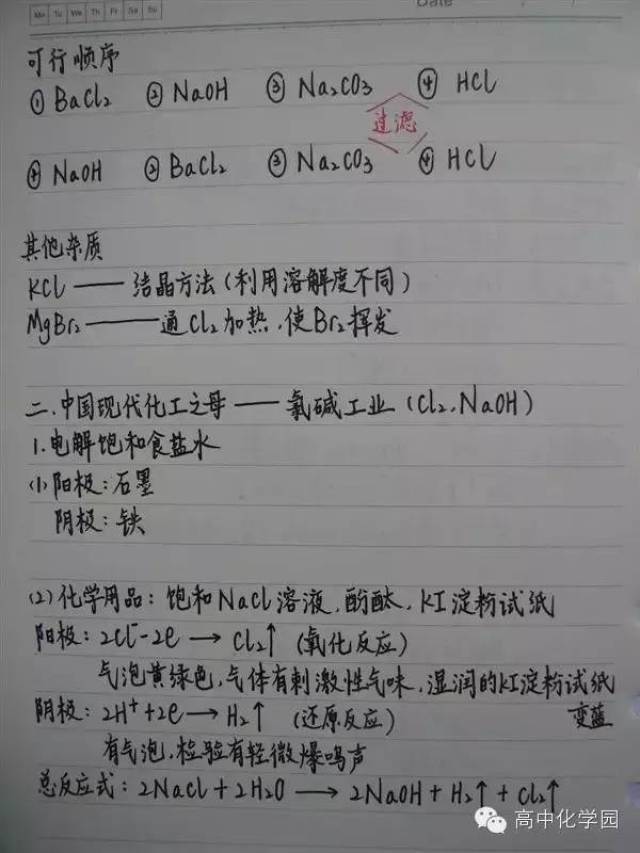 Mo Tu We Th Fr Sa Su
Date
可行顺序
① BaCl₂ ② NaOH ③ Na₂CO₃ ④ HCl
过滤
④ NaOH ② BaCl₂ ③ Na₂CO₃ ④ HCl
其他杂质
KCl —— 结晶方法（利用溶解度不同）
MgBr₂ —— 通Cl₂加热，使Br₂挥发
二.中国现代化工之母 —— 氯碱工业（Cl₂、NaOH）
1.电解饱和食盐水
(1)阳极：石墨
阴极：铁
(2)化学用品：饱和NaCl溶液.酚酞.KI淀粉试纸
阳极：2Cl⁻-2e → Cl₂↑（氧化反应）
气泡黄绿色，气体有刺激性气味，湿润的KI淀粉试纸
变蓝
阴极：2H⁺+2e → H₂↑（还原反应）
有气泡，检验有轻微爆鸣声
总反应式：2NaCl+2H₂O → 2NaOH+H₂↑+Cl₂↑
高中化学园